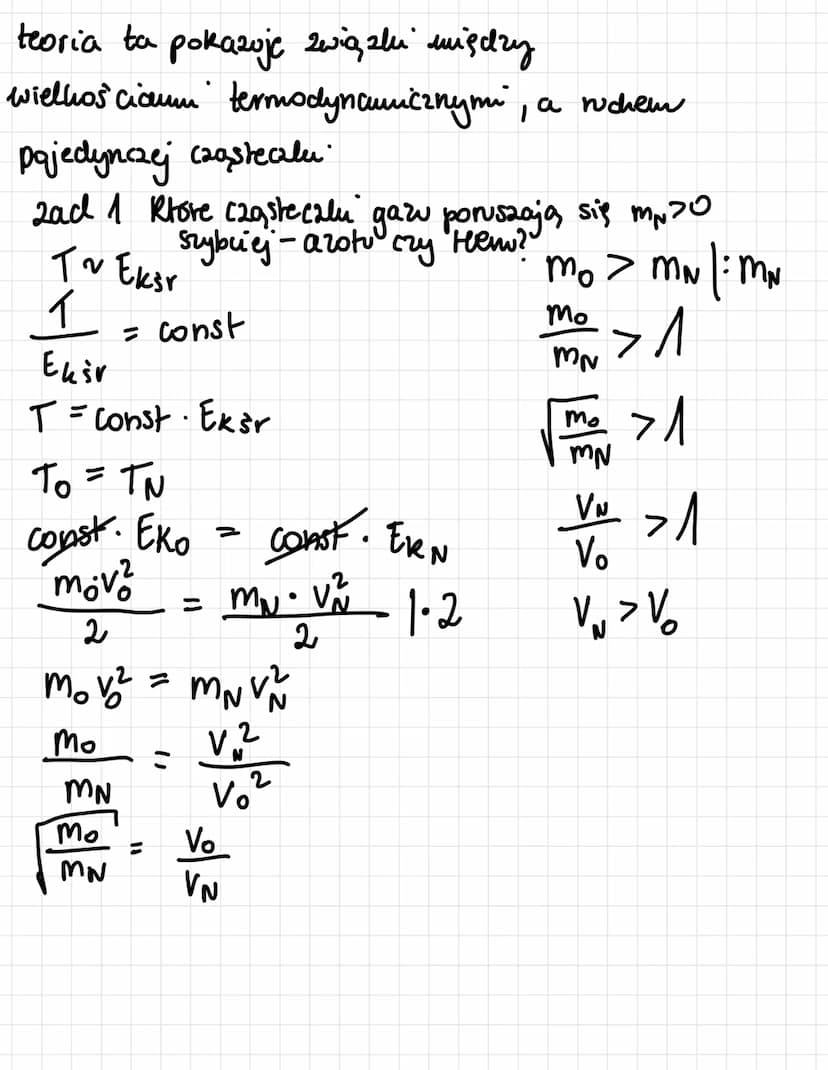 teoria ta pokazuje związki między
wielkościami termodynamicznymi, a ruchem
pojedynczej cząsteczki
zad 1 Które cząsteczki gazu poruszają się
szybciej - azotu czy tlenu?
T ~ Ekśr
T / Ekśr = const
T = const · Ekśr
T₀ = T_N
const · Ek₀ = const · Ek_N
m₀·v₀² / 2 = m_N · v_N² / 2 |·2
m₀ v₀² = m_N v_N²
m₀ / m_N = v_N² / v₀²
√(m₀ / m_N) = v₀ / v_N
m_N > 0
m₀ > m_N |: m_N
m₀ / m_N > 1
√(m₀ / m_N) > 1
v_N / v₀ > 1
v_N > v₀